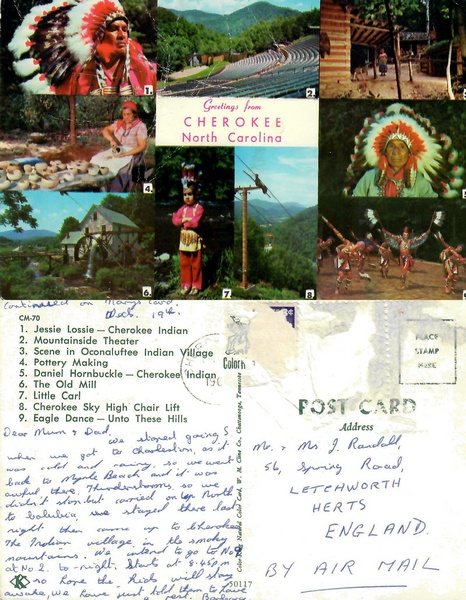 1.
2.
Greetings from
CHEROKEE
North Carolina
4.
6.
7.
8.
Continued on Marys Card.
Weds. 19th.
CM-70
1. Jessie Lossie — Cherokee Indian
2. Mountainside Theater
3. Scene in Oconaluftee Indian Village
4. Pottery Making
5. Daniel Hornbuckle — Cherokee Indian
6. The Old Mill
7. Little Carl
8. Cherokee Sky High Chair Lift
9. Eagle Dance — Unto These Hills
Dear Mum & Dad,
We stoped going S
when we got to Charleston, as it
was cold and raining, so we went
back to Myrtle Beach and it was
awful there. Thunderstorms, so we
didn't stop but carried on up North
to , we stayed there last
night then came up to Cherokee
The Indian village in the smoky
mountains. We intend to go to No 9
at No 2. to-night. Starts at 8.45pm
so hope the kids will stay
awake, we have just told them to have
a rest. Barbara
PLACE
STAMP
HERE
POST CARD
Address
Mr. & Mrs J. Randall,
56, Spring Road,
LETCHWORTH
HERTS
ENGLAND.
BY AIR MAIL
50117